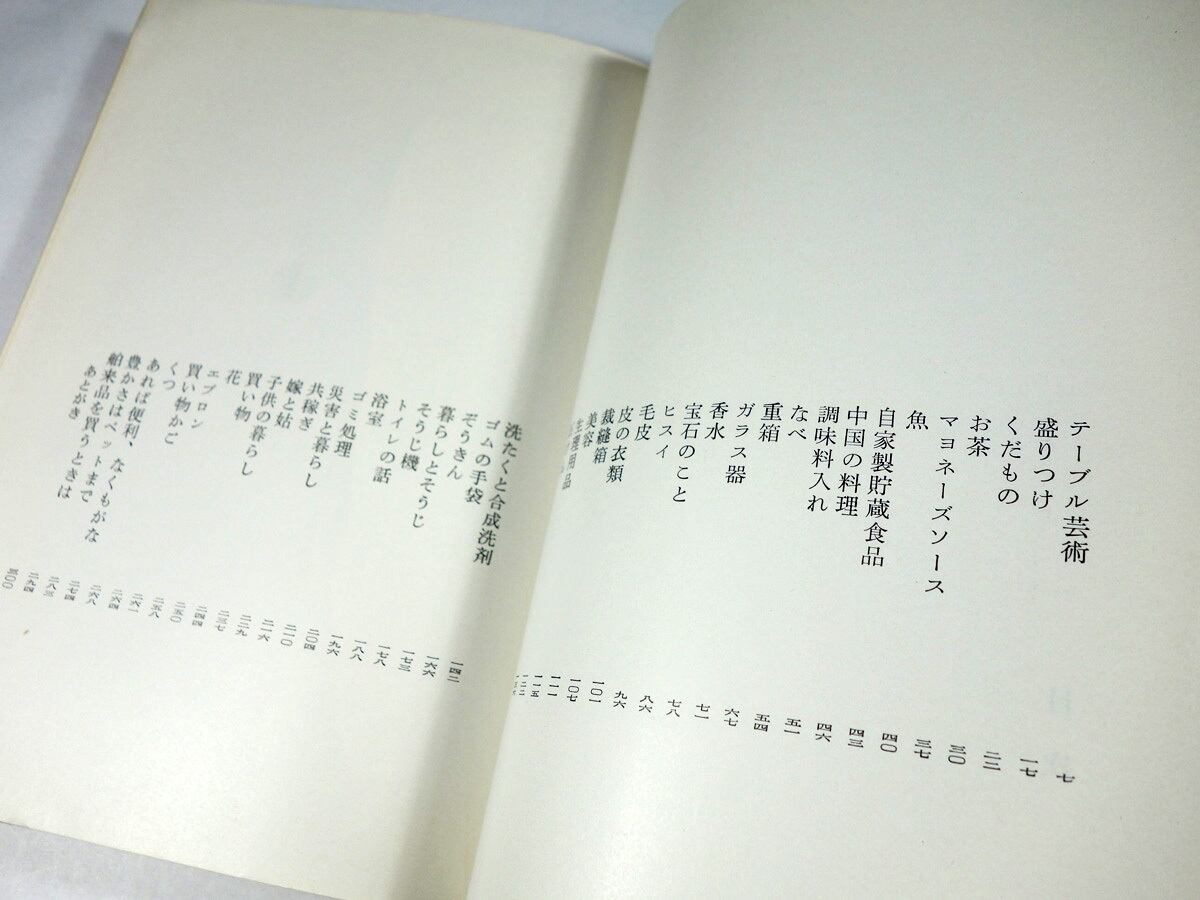 テーブル芸術 七
盛りつけ 一七
くだもの 二二
お茶 三〇
マヨネーズソース 三七
魚 四〇
自家製貯蔵食品 四三
中国の料理 四六
調味料入れ 五一
なべ 五四
重箱 六七
ガラス器 七一
香水 七八
宝石のこと 八六
ヒスイ 九六
毛皮 一〇一
皮の衣類 一〇七
裁縫箱 一一一
美容 一一五
生理用品 一二二
洗たくと合成洗剤 一四二
ゴムの手袋 一六六
ぞうきん 一七三
暮らしとそうじ 一七八
そうじ機 一八八
トイレの話 一九六
浴室 二〇四
ゴミ処理 二一〇
災害と暮らし 二一六
共稼ぎ 二二九
嫁と姑 二三七
子供の暮らし 二四四
買い物 二五〇
花 二五八
エプロン 二六一
買い物かご 二六四
くつ 二六八
あれば便利、なくもがな 二七四
豊かさはペットまで 二八三
舶来品を買うときは 二九四
あとがき 三〇〇